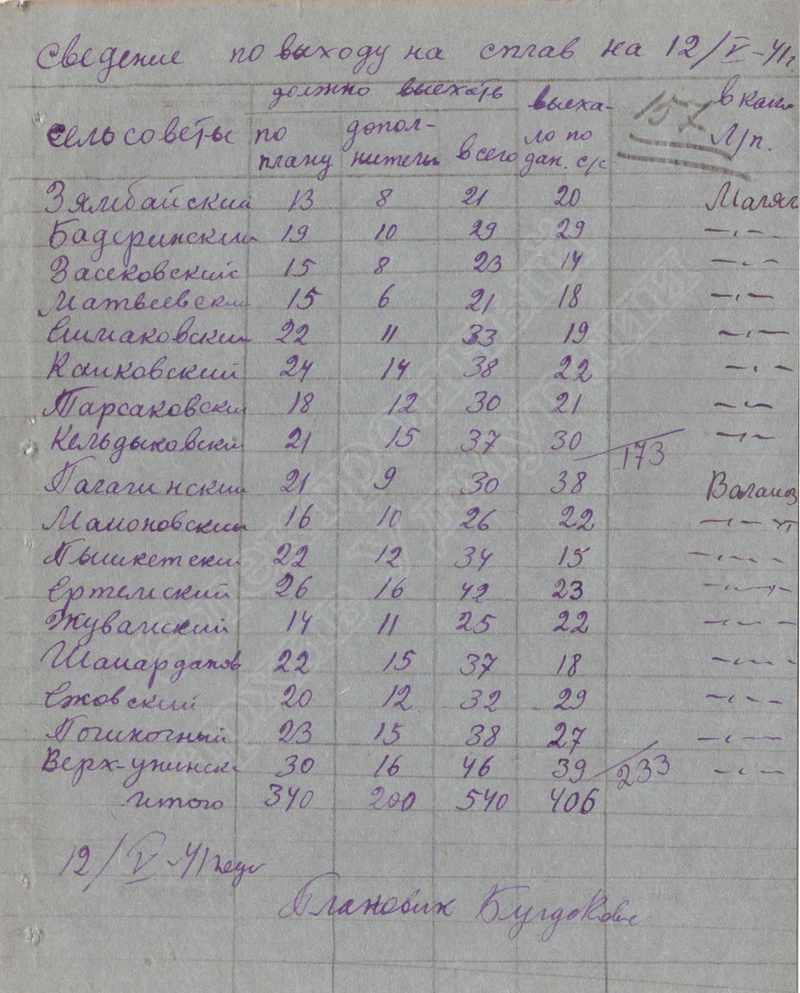 Сведение по выходу на сплав на 12/V-41г.
должно выехать
сельсоветы по плану дополнительн всего выехало по дан. с/с 157 в какой л/п.
Зямбайский 13 8 21 20
Бадеринский 19 10 29 29 -"-
Засековский 15 8 23 14 -"-
Матвеевский 15 6 21 18 -"-
Симаковский 22 11 33 19 -"-
24 14 38 22 -"-
18 12 30 21 -"-
Кельдыковский 21 15 37 30 173 -"-
21 9 30 38
16 10 26 22 -"-
Пышкетский 22 12 34 15 -"-
Ертемский 26 16 42 23 -"-
Жувамский 14 11 25 22 -"-
Шамардинов 22 15 37 18 -"-
Ежовский 20 12 32 29 -"-
23 15 38 27 -"-
Верх-унинск 30 16 46 39 233 -"-
итого 340 200 540 406
12/V-41 года
Плановик